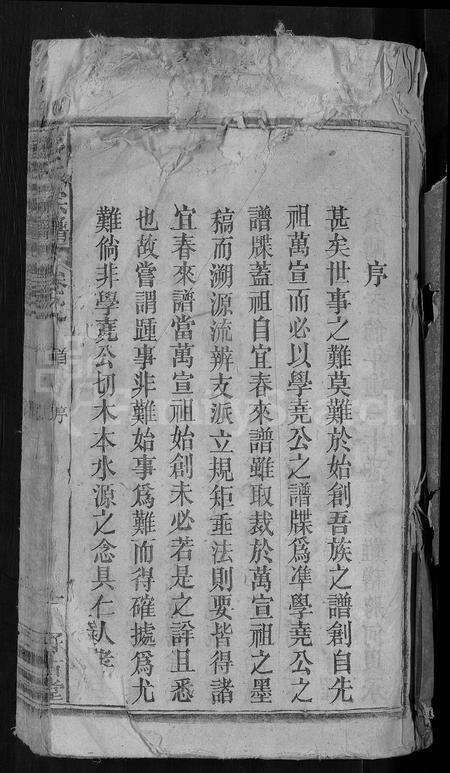 序
甚矣世事之難莫難於始創吾族之譜創自先
祖萬宣而必以學堯公之譜牒爲準學堯公之
譜牒蓋祖自宜春來譜雖取裁於萬宣祖之墨
稿而溯源流辨支派立規矩垂法則要皆得諸
宜春來譜當萬宣祖始創未必若是之詳且悉
也故嘗謂踵事非難始事爲難而得確據爲尤
難倘非學堯公切木本水源之念具仁人孝
宗譜 序